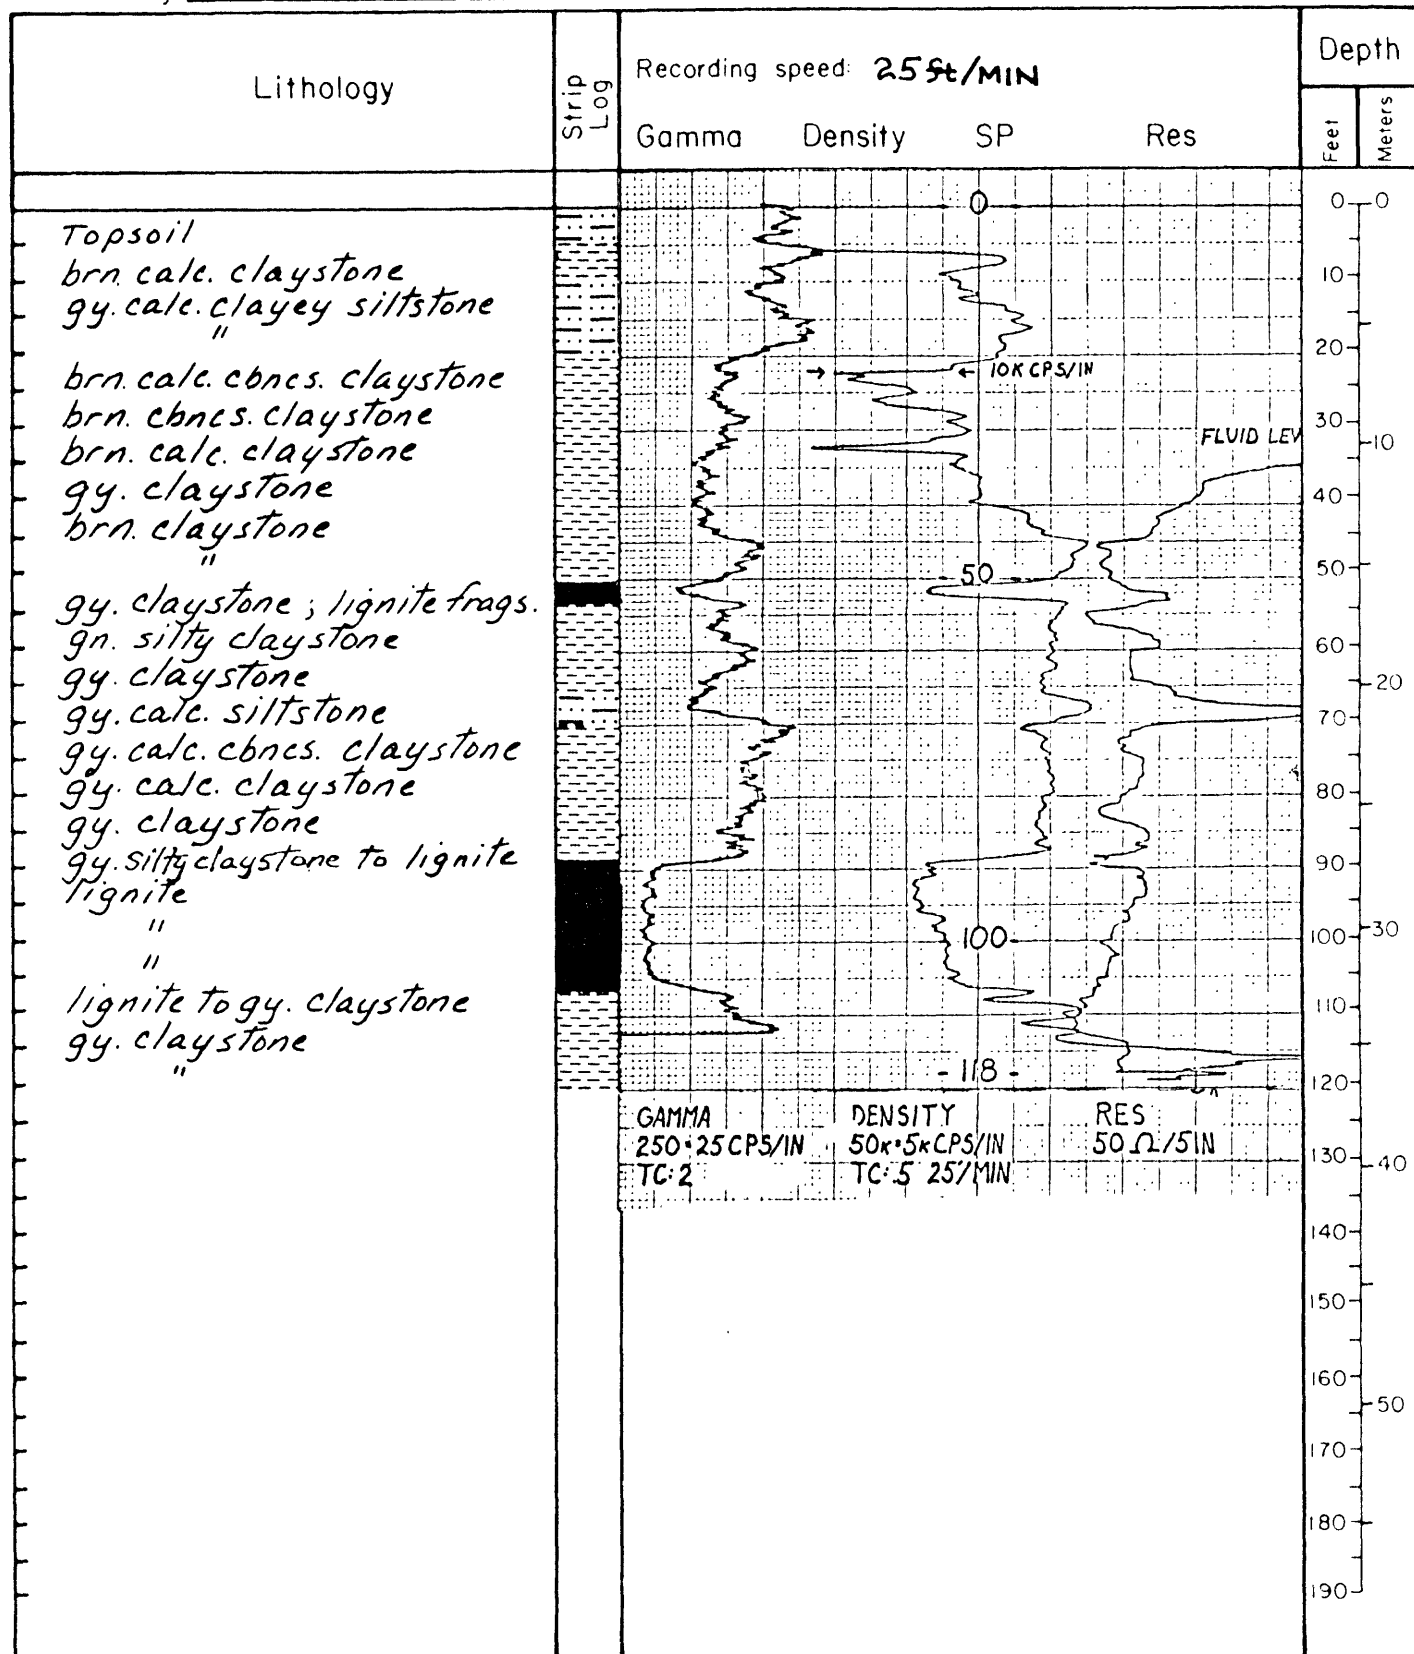 Lithology
Strip Log
Recording speed: 25 ft/MIN
Gamma Density SP Res
Depth
Feet
Meters
Topsoil
brn. calc. claystone
gy. calc. clayey siltstone
"
brn. calc. cbncs. claystone
brn. cbncs. claystone
brn. calc. claystone
gy. claystone
brn. claystone
"
gy. claystone ; lignite frags.
gn. silty claystone
gy. claystone
gy. calc. siltstone
gy. calc. cbncs. claystone
gy. calc. claystone
gy. claystone
gy. silty claystone to lignite
lignite
"
"
lignite to gy. claystone
gy. claystone
"
0
10K CPS/IN
FLUID LEV
50
100
118
GAMMA
250·25 CPS/IN
TC: 2
DENSITY
50K·5K CPS/IN
TC: .5 25'/MIN
RES
50 Ω/5IN
0
10
20
30
40
50
60
70
80
90
100
110
120
130
140
150
160
170
180
190
0
10
20
30
40
50